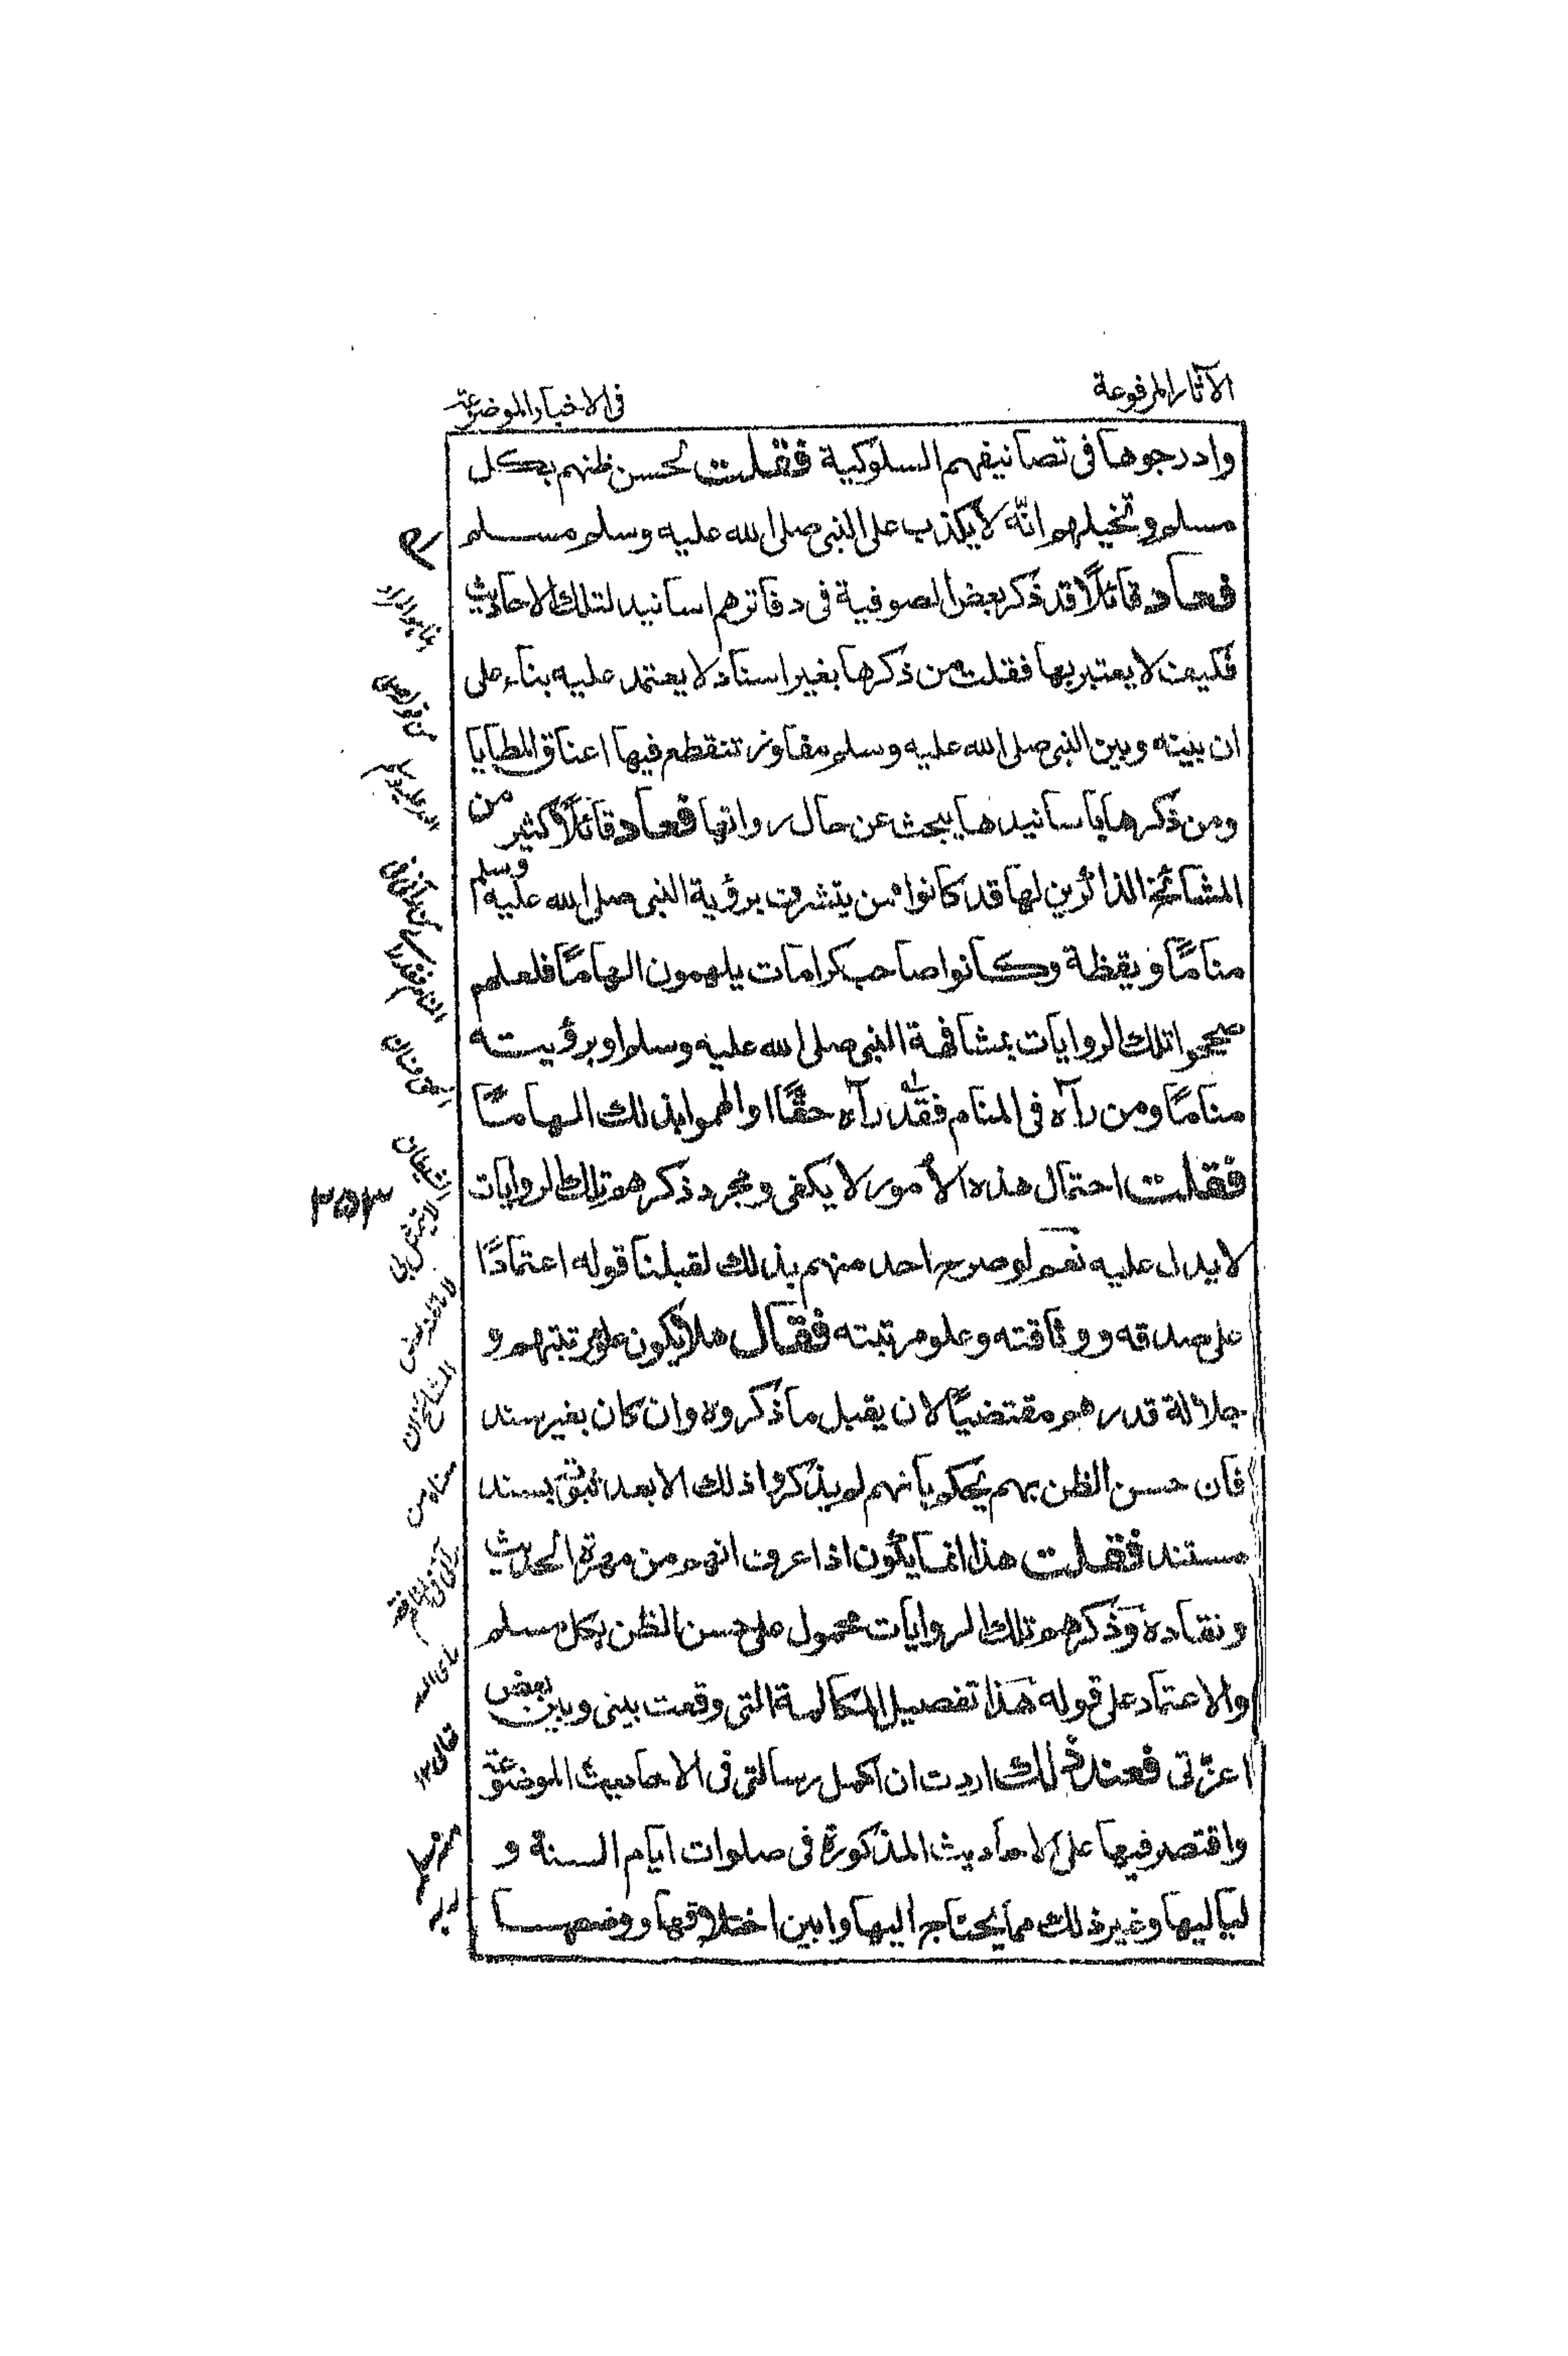 الآثار المرفوعة
فى الاخبار الموضوعة
وادرجوها فى تصانيفهم السلوكية فقلت لحسن ظنهم بكل
مسلم وتخيلهم انّه لا يكذب على النبى صلى الله عليه وسلم مسلم
فعاد قائلًا قد ذكر بعض الصوفية فى دفاترهم اسانيد لتلك الاحاديث
فكيف لا يعتبر بها فقلت من ذكرها بغير اسناد لا يعتمد عليه بناء على
ان بينه وبين النبى صلى الله عليه وسلم مفاوز تنقطع فيها اعناق المطايا
ومن ذكرها باسانيدها يبحث عن حال رواتها فعاد قائلًا كثير من
المشائخ الذاكرين لها قد كانوا ممن يتشرف برؤية النبى صلى الله عليه وسلم
منامًا و يقظة وكانوا صاحب كرامات يلهمون الهامًا فلعلهم
صححوا تلك الروايات بمشافهة النبى صلى الله عليه وسلم او برؤيته
منامًا ومن رآه فى المنام فقد رآه حقًّا او الهموا بذلك الهامًا
فقلت احتمال هذه الأمور لا يكفى ومجرد ذكرهم تلك الروايات
لا يدل عليه نعم لو صرح احد منهم بذلك لقبلنا قوله اعتمادًا
على صدقه و وثاقته وعلو مرتبته فقال هلا يكون علو مرتبتهم و
جلالة قدرهم مقتضيًا لان يقبل ما ذكروه وان كان بغير سند
فان حسن الظن بهم يحكم بانهم لم يذكروا ذلك الا بعد ثبوته بسند
مستند فقلت هذا انما يكون اذا عرف انهم من مهرة الحديث
ونقاده وذكرهم تلك الروايات محمول على حسن الظن بكل مسلم
والاعتماد على قوله هذا تفصيل المكالمة التى وقعت بينى وبين بعض
اعزّتى فعند ذلك اردت ان اكمل رسالتى فى الاحاديث الموضوعة
واقتصر فيها على الاحاديث المذكورة فى صلوات ايام السنة و
لياليها وغير ذلك مما يحتاج اليها وابين اختلاقها ووضعها
٣٥٣
الشيطان
لا يتمثل بى